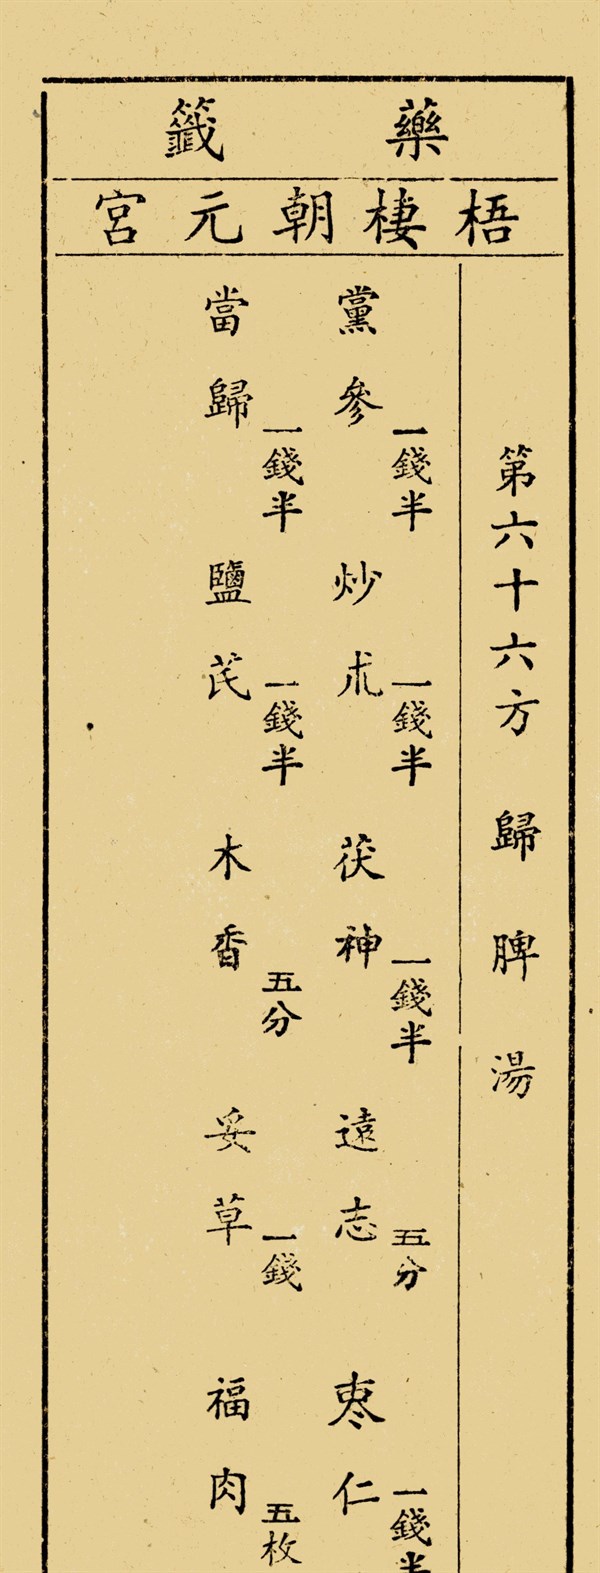 藥籤
梧棲朝元宮
第六十六方 歸脾湯
黨參 一錢半 炒朮 一錢半 茯神 一錢半 遠志 五分 枣仁 一錢半
當歸 一錢半 鹽芪 一錢半 木香 五分 妥草 一錢 福肉 五枚